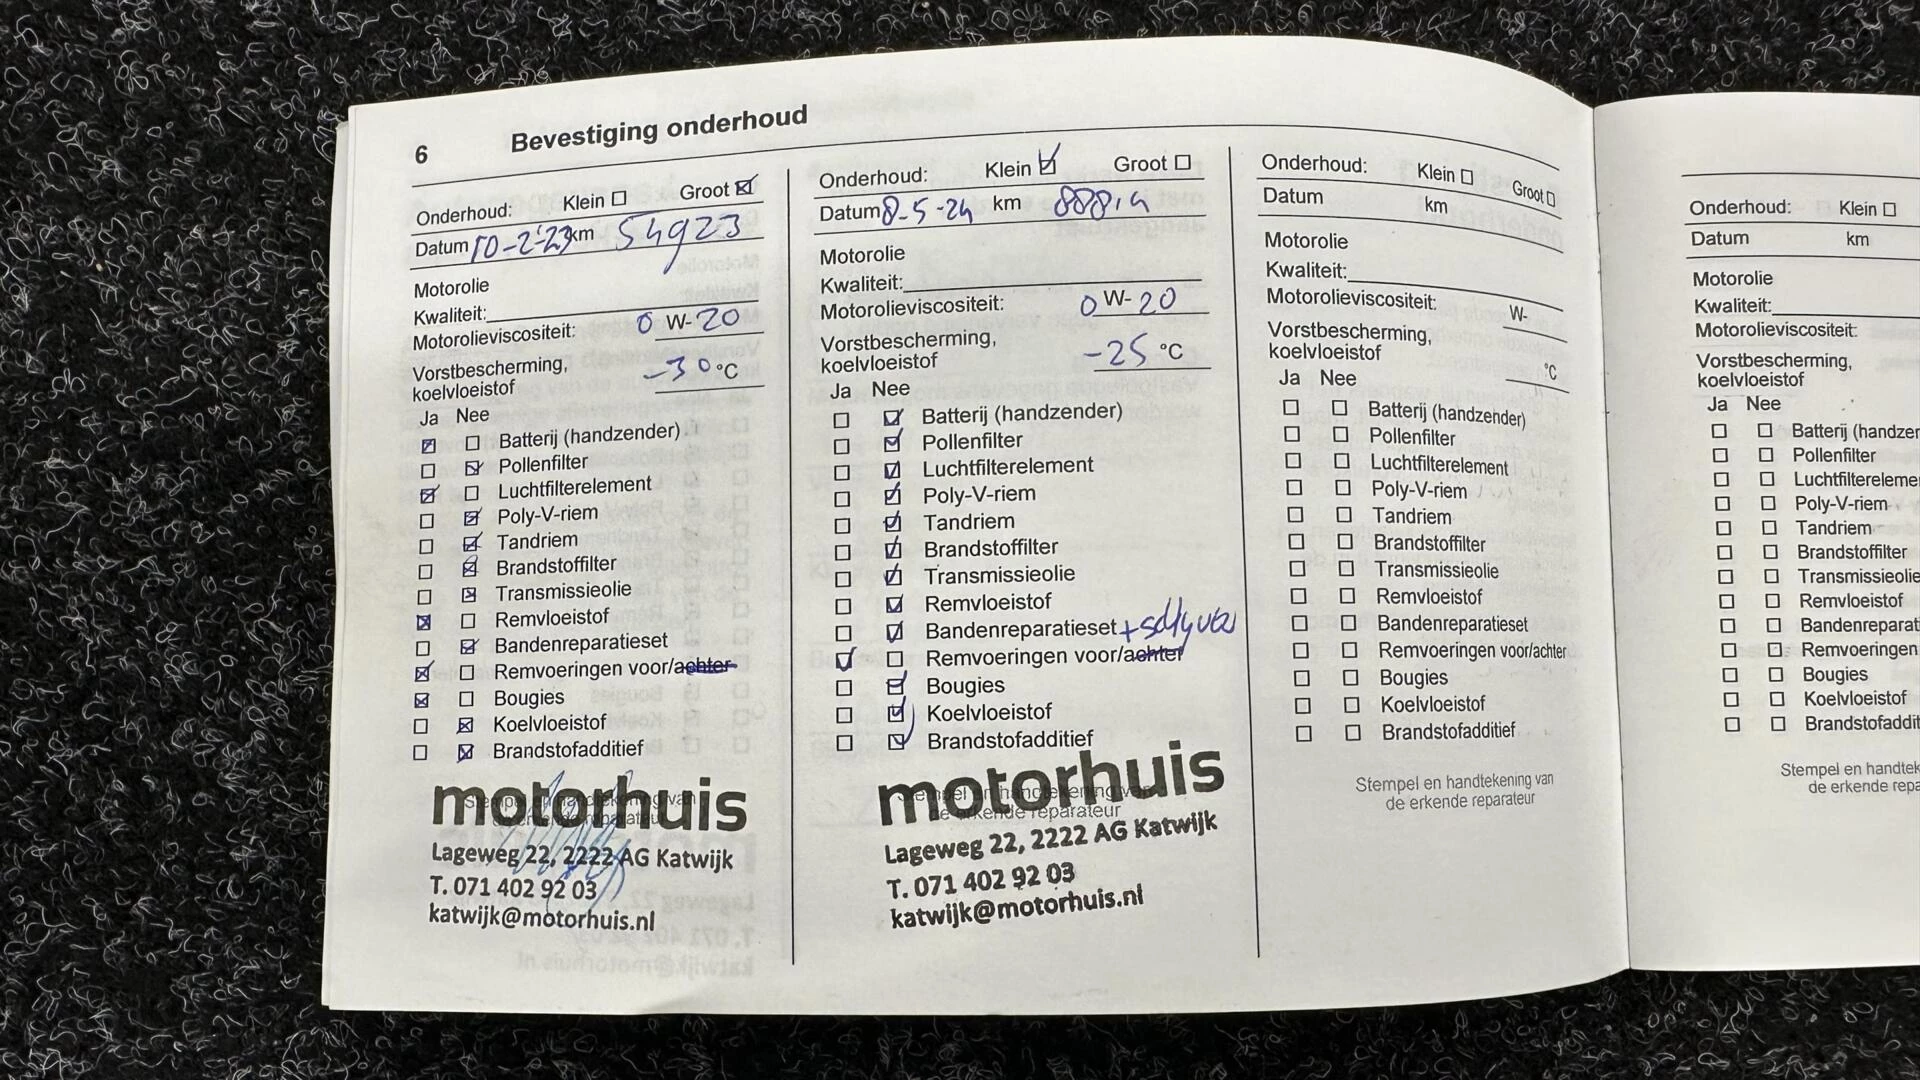 6 Bevestiging onderhoud
Onderhoud: Klein Groot
Datum 10-2-23 km 54923
Motorolie
Kwaliteit:
Motorolieviscositeit: 0 W- 20
Vorstbescherming,
koelvloeistof -30 °C
Ja Nee
Batterij (handzender)
Pollenfilter
Luchtfilterelement
Poly-V-riem
Tandriem
Brandstoffilter
Transmissieolie
Remvloeistof
Bandenreparatieset
Remvoeringen voor/achter
Bougies
Koelvloeistof
Brandstofadditief
Stempel en handtekening van
de erkende reparateur
motorhuis
Lageweg 22, 2222 AG Katwijk
T. 071 402 92 03
katwijk@motorhuis.nl
Onderhoud: Klein Groot
Datum 8-5-24 km
Motorolie
Kwaliteit:
Motorolieviscositeit: 0 W- 20
Vorstbescherming,
koelvloeistof -25 °C
Ja Nee
Batterij (handzender)
Pollenfilter
Luchtfilterelement
Poly-V-riem
Tandriem
Brandstoffilter
Transmissieolie
Remvloeistof
Bandenreparatieset
Remvoeringen voor/achter
Bougies
Koelvloeistof
Brandstofadditief
Stempel en handtekening van
de erkende reparateur
motorhuis
Lageweg 22, 2222 AG Katwijk
T. 071 402 92 03
katwijk@motorhuis.nl
Onderhoud: Klein Groot
Datum km
Motorolie
Kwaliteit:
Motorolieviscositeit: W-
Vorstbescherming,
koelvloeistof °C
Ja Nee
Batterij (handzender)
Pollenfilter
Luchtfilterelement
Poly-V-riem
Tandriem
Brandstoffilter
Transmissieolie
Remvloeistof
Bandenreparatieset
Remvoeringen voor/achter
Bougies
Koelvloeistof
Brandstofadditief
Stempel en handtekening van
de erkende reparateur
Onderhoud: Klein
Datum km
Motorolie
Kwaliteit:
Motorolieviscositeit:
Vorstbescherming,
koelvloeistof
Ja Nee
Batterij (handzer
Pollenfilter
Luchtfiltereleme
Poly-V-riem
Tandriem
Brandstoffilter
Transmissieolie
Remvloeistof
Bandenreparati
Remvoeringen
Bougies
Koelvloeistof
Brandstofaddit
Stempel en handtek
de erkende repa